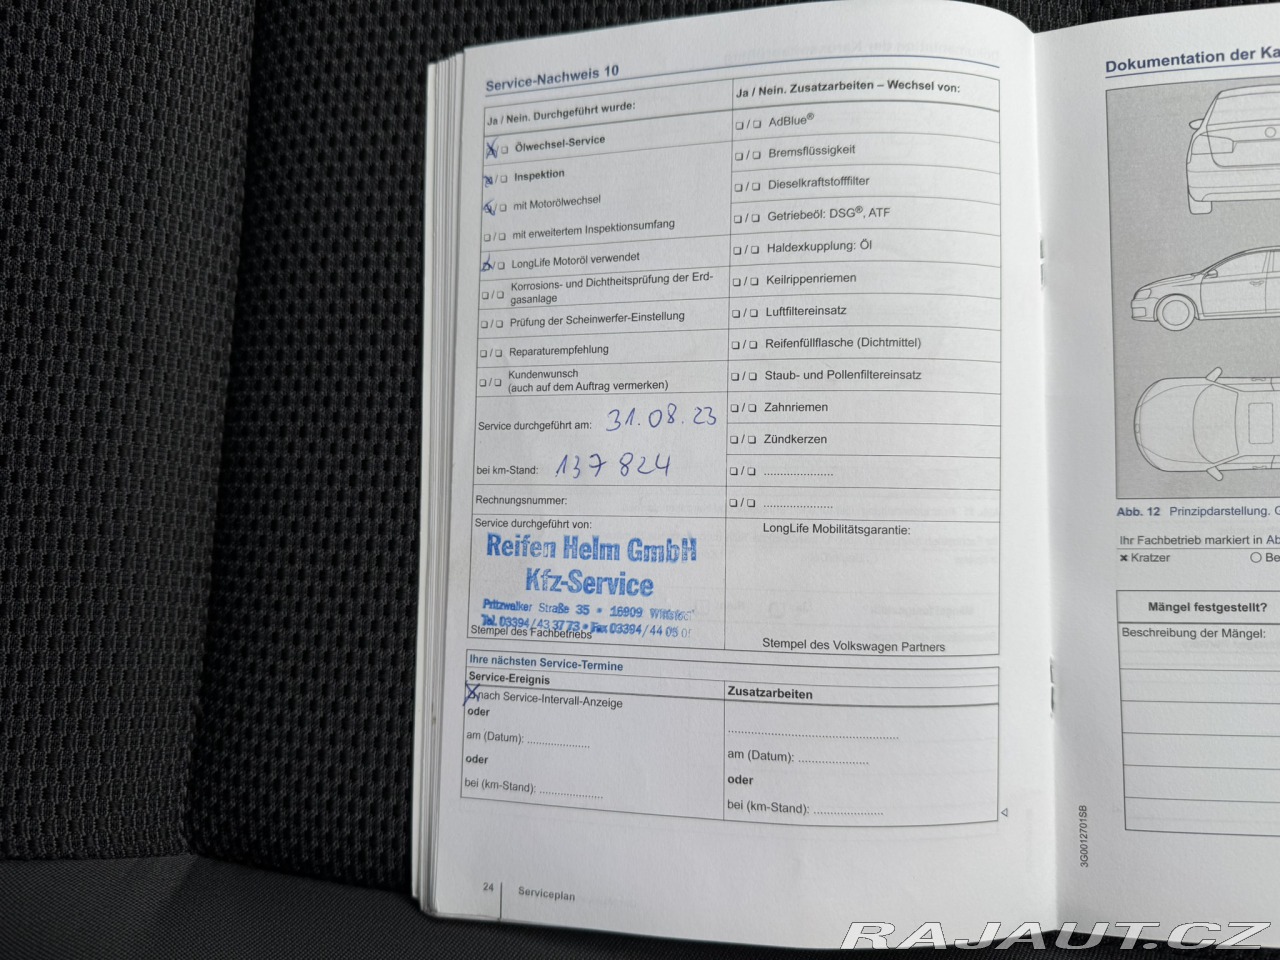 Service-Nachweis 10
Ja / Nein. Durchgeführt wurde:
❏ / ❏ Ölwechsel-Service
❏ / ❏ Inspektion
❏ / ❏ mit Motorölwechsel
❏ / ❏ mit erweitertem Inspektionsumfang
❏ / ❏ LongLife Motoröl verwendet
❏ / ❏ Korrosions- und Dichtheitsprüfung der Erd-
gasanlage
❏ / ❏ Prüfung der Scheinwerfer-Einstellung
❏ / ❏ Reparaturempfehlung
❏ / ❏ Kundenwunsch
(auch auf dem Auftrag vermerken)
Service durchgeführt am: 31.08.23
bei km-Stand: 137 824
Rechnungsnummer:
Service durchgeführt von:
Reifen Helm GmbH
Kfz-Service
Pritzwalker Straße 35 • 16909
Tel. 03394/43 37 73 • Fax 03394/44 05 0
Stempel des Fachbetriebs
Ja / Nein. Zusatzarbeiten – Wechsel von:
❏ / ❏ AdBlue®
❏ / ❏ Bremsflüssigkeit
❏ / ❏ Dieselkraftstofffilter
❏ / ❏ Getriebeöl: DSG®, ATF
❏ / ❏ Haldexkupplung: Öl
❏ / ❏ Keilrippenriemen
❏ / ❏ Luftfiltereinsatz
❏ / ❏ Reifenfüllflasche (Dichtmittel)
❏ / ❏ Staub- und Pollenfiltereinsatz
❏ / ❏ Zahnriemen
❏ / ❏ Zündkerzen
❏ / ❏ .....................
❏ / ❏ .....................
LongLife Mobilitätsgarantie:
Stempel des Volkswagen Partners
Ihre nächsten Service-Termine
Service-Ereignis
❏ nach Service-Intervall-Anzeige
oder
am (Datum): ...................
oder
bei (km-Stand): ...................
Zusatzarbeiten
....................................................
am (Datum): .....................
oder
bei (km-Stand): .....................
24 Serviceplan
Dokumentation der Ka
Abb. 12 Prinzipdarstellung. G
Ihr Fachbetrieb markiert in Ab
× Kratzer ○ Be
Mängel festgestellt?
Beschreibung der Mängel:
3G0012701SB
RAJAUT.CZ